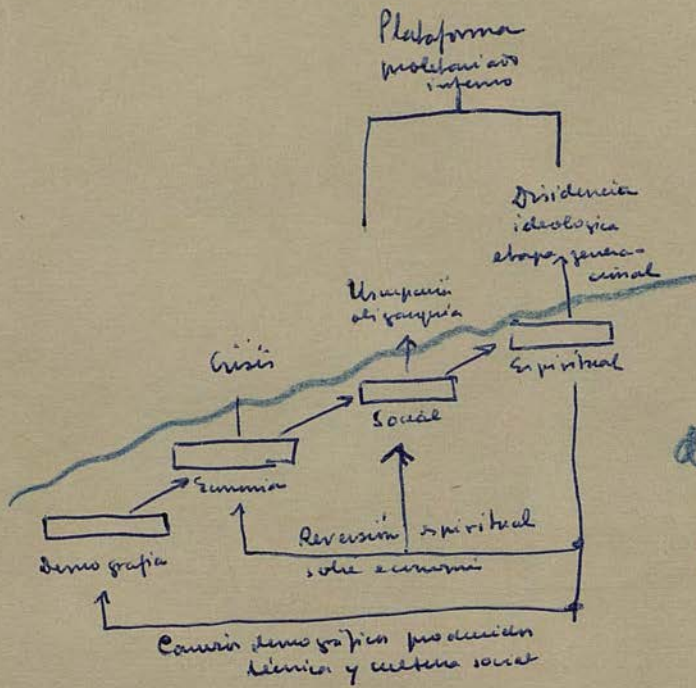 Plataforma
proletariado
interno
Disidencia
ideologica
etapa genera-
cional
Usurpación
oligarquía
Crisis
Espiritual
Social
Economia
Demografia
Reversión espiritual
sobre economia
demográficos producidos
técnica y cultura social